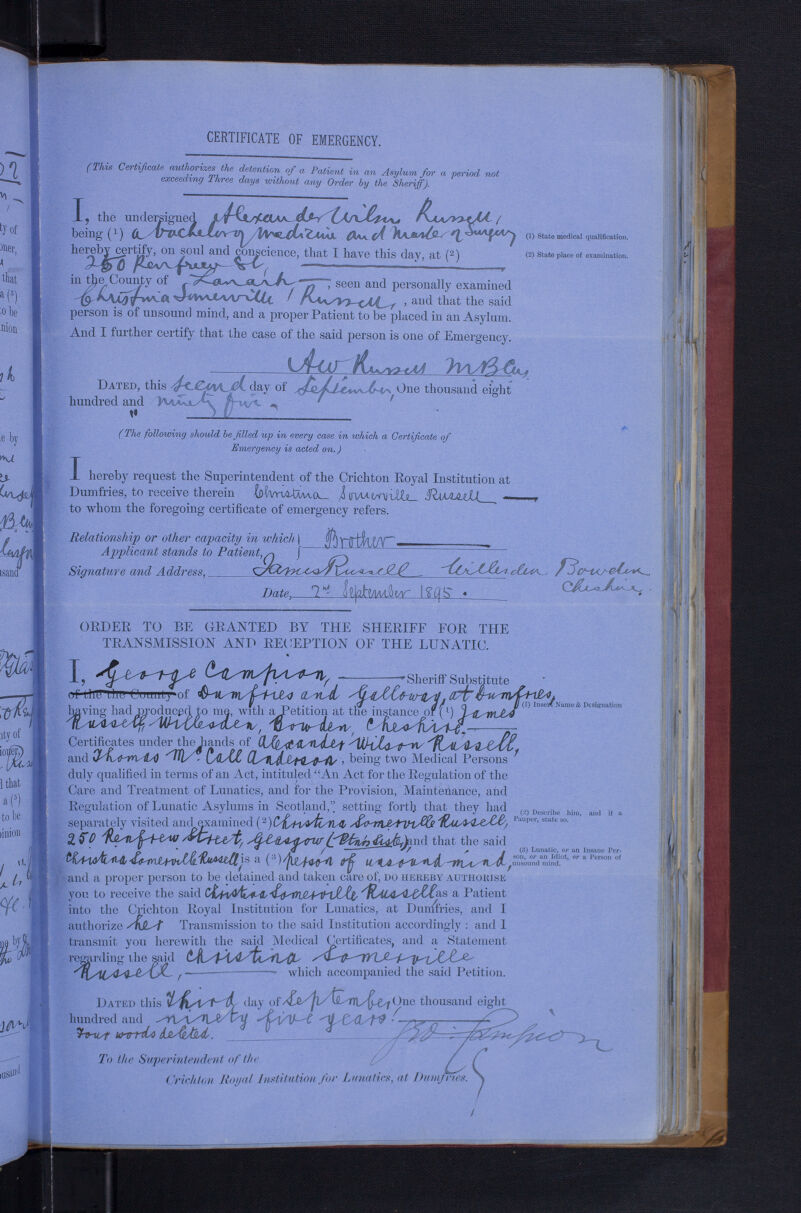 CERTIFICATE OF EMERGENCY.
(This Certificate authorizes the detention of a Patient in an Asylum for a period not
exceeding Three days without any Order by the Sheriff).
I, the undersigned Alexander Wilson Russell,
being (1) a bachelor of Medicine and Master of Surgery
(1) State medical qualification.
hereby certify, on soul and conscience, that I have this day, at (2)
(2) State place of examination.
250 Renfrew St,
in the County of Lanark, seen and personally examined
Christina Somerville / Russell, , and that the said
person is of unsound mind, and a proper Patient to be placed in an Asylum.
And I further certify that the case of the said person is one of Emergency.
AW Russell MB
DATED, this second day of September, One thousand eight
hundred and ninety five.
(The following should be filled up in every case in which a Certificate of
Emergency is acted on.)
I hereby request the Superintendent of the Crichton Royal Institution at
Dumfries, to receive therein Christina Somerville Russell
to whom the foregoing certificate of emergency refers.
Relationship or other capacity in which
Applicant stands to Patient, } Brother
Signature and Address, James Russell Willesden Bowden
Cheshire.
Date, 2nd September 1895.
ORDER TO BE GRANTED BY THE SHERIFF FOR THE
TRANSMISSION AND RECEPTION OF THE LUNATIC.
I, George Campion, Sheriff Substitute
of the the County of Dumfries and Galloway, at Dumfries,
having had produced to me, with a Petition at the instance of (1) James
(1) Insert Name & Designation
Russell, Willesden, Bowden, Cheshire.
Certificates under the hands of Alexander Wilson Russell,
and Thomas McCall Anderson, being two Medical Persons
duly qualified in terms of an Act, intituled "An Act for the Regulation of the
Care and Treatment of Lunatics, and for the Provision, Maintenance, and
Regulation of Lunatic Asylums in Scotland," setting forth that they had
separately visited and examined (2) Christina Somerville Russell,
(2) Describe him, and if a
Pauper, state so.
250 Renfrew Street, Glasgow and that the said
Christina Somerville Russell is a (3) person of unsound mind,
(3) Lunatic, or an Insane Per-
son, or an Idiot, or a Person of
unsound mind.
and a proper person to be detained and taken care of, DO HEREBY AUTHORISE
you to receive the said Christina Somerville Russell as a Patient
into the Crichton Royal Institution for Lunatics, at Dumfries, and I
authorize her Transmission to the said Institution accordingly : and I
transmit you herewith the said Medical Certificates, and a Statement
regarding the said Christina Somerville
Russell, which accompanied the said Petition.
DATED this Third day of September One thousand eight
hundred and ninety five years.
Four words deleted.
Campion
To the Superintendent of the
Crichton Royal Institution for Lunatics, at Dumfries.